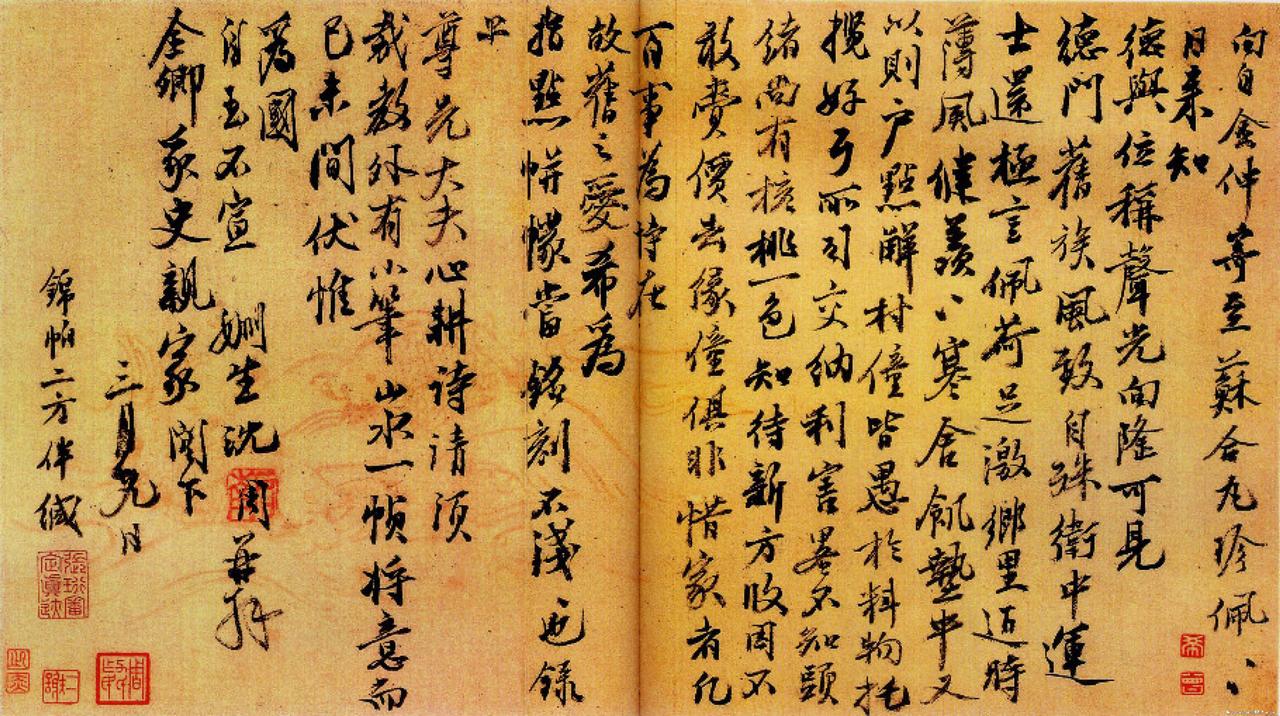 向自金仲等至蘇合丸珍佩、、
日来知
德與位稱聲光向隆可見
德門舊族風致自殊衛中運
士還極言佩荷足激鄉里近時
薄風健羨、寒舍飢墊中又
以則户點解村僮皆愚於料物托
攬好弓所司交納利害畧不知頭
緒尚有核桃一色知待新方收因不
敢賫價去緣僮俱非惜家者凡
百事為恃在
故舊之愛希為
指點帡幪當銘刻不淺也録
上
尊先大夫心耕詩請須
裁教外有小筆山水一幀将意而
已未間伏惟
為國
自玉不宣 姻生沈周再拜
全卿冢史親家閣下
三月九日
錦帕二方伴緘
張珩審定真跡